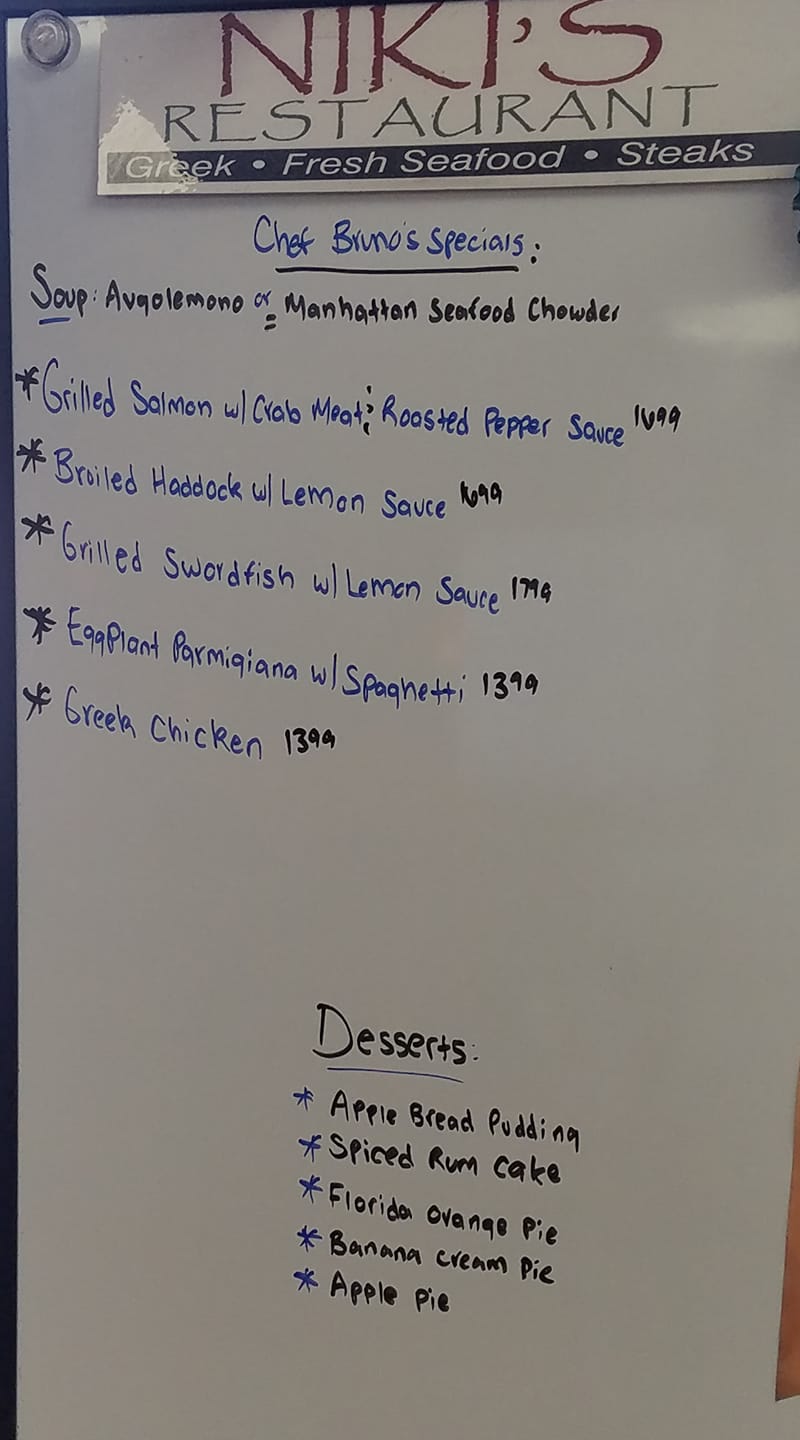 NIKI'S
RESTAURANT
Greek • Fresh Seafood • Steaks
Chef Bruno's Specials:
Soup: Avgolemono or Manhattan Seafood Chowder
* Grilled Salmon w/ Crab Meat & Roasted Pepper Sauce 1699
* Broiled Haddock w/ Lemon Sauce 1699
* Grilled Swordfish w/ Lemon Sauce 1799
* EggPlant Parmigiana w/ Spaghetti 1399
* Greek Chicken 1399
Desserts:
* Apple Bread Pudding
* Spiced Rum Cake
* Florida Orange Pie
* Banana Cream Pie
* Apple Pie